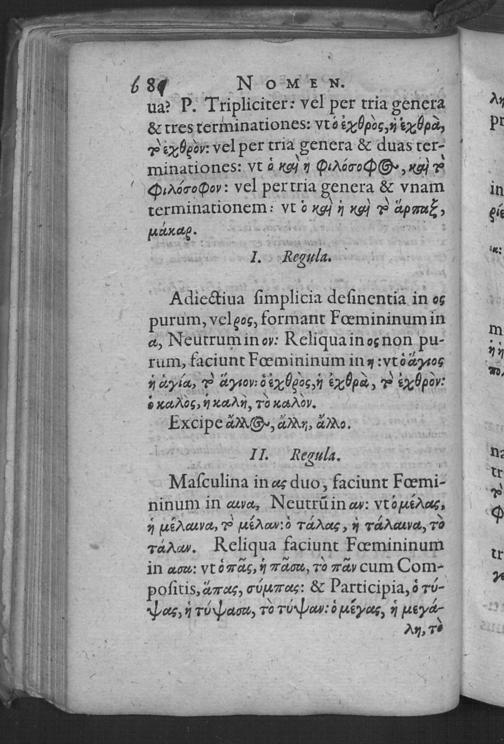 68 NOMEN.
ua? P. Tripliciter: vel per tria genera
& tres terminationes: vt ὁ ἐχθρὸς, ἡ ἐχθρὰ,
τὸ ἐχθρὸν: vel per tria genera & duas ter-
minationes: vt ὁ καὶ η φιλόσοφος, καὶ τὸ
φιλόσοφον: vel per tria genera & vnam
terminationem: vt ὁ καὶ ἡ καὶ τὸ ἅρπαξ,
μάκαρ.
I. Regula.
Adiectiua simplicia desinentia in ος
purum, vel ρος, formant Fœmininum in
α, Neutrum in ον: Reliqua in ος non pu-
rum, faciunt Fœmininum in η: vt ὁ ἅγιος
ἡ ἁγία, τὸ ἅγιον: ὁ ἐχθρὸς, ἡ ἐχθρὰ, τὸ ἐχθρὸν:
ὁ καλὸς, ἡ καλὴ, τὸ καλὸν.
Excipe ἄλλος, ἄλλη, ἄλλο.
II. Regula.
Masculina in ας duo, faciunt Fœmi-
ninum in αινα, Neutrū in αν: vt ὁ μέλας,
ἡ μέλαινα, τὸ μέλαν: ὁ τάλας, ἡ τάλαινα, τὸ
τάλαν. Reliqua faciunt Fœmininum
in ασα: vt ὁ πᾶς, ἡ πᾶσα, τὸ πᾶν cum Com-
positis, ἅπας, σύμπας: & Participia, ὁ τύ-
ψας, ἡ τύψασα, τὸ τύψαν: ὁ μέγας, ἡ μεγά-
λη, τὸ